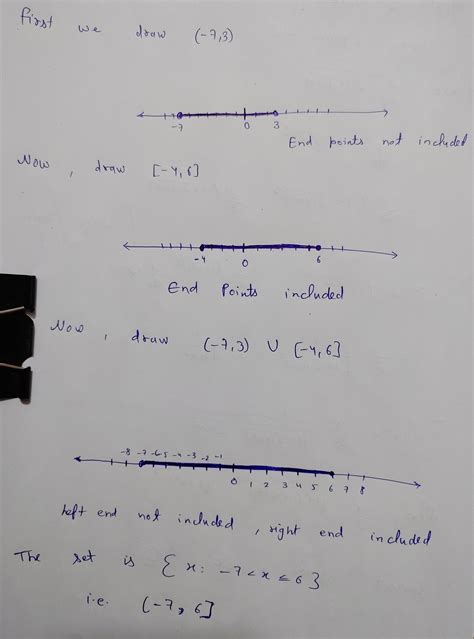 First we draw (-7,3)
-7 0 3
End points not included
Now, draw [-4,6]
-4 0 6
End Points included
Now, draw (-7,3) ∪ [-4,6]
-8 -7 -6 -5 -4 -3 -2 -1
0 1 2 3 4 5 6 7 8
Left end not included, right end included
The set is {x: -7<x≤6}
i.e. (-7, 6]